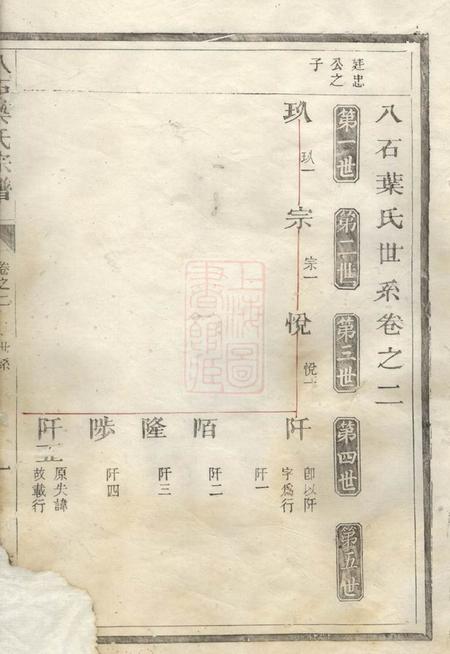 八石葉氏世系卷之二
第一世
第二世
第三世
第四世
第五世
廷忠
公之
子
玖
玖一
宗
宗一
悅
悅一
阡
即以阡
字爲行
阡一
陌
阡二
隆
阡三
陟
阡四
阡五
原失諱
故載行
上海圖
書館藏
八石葉氏宗譜
卷之二
世系
一